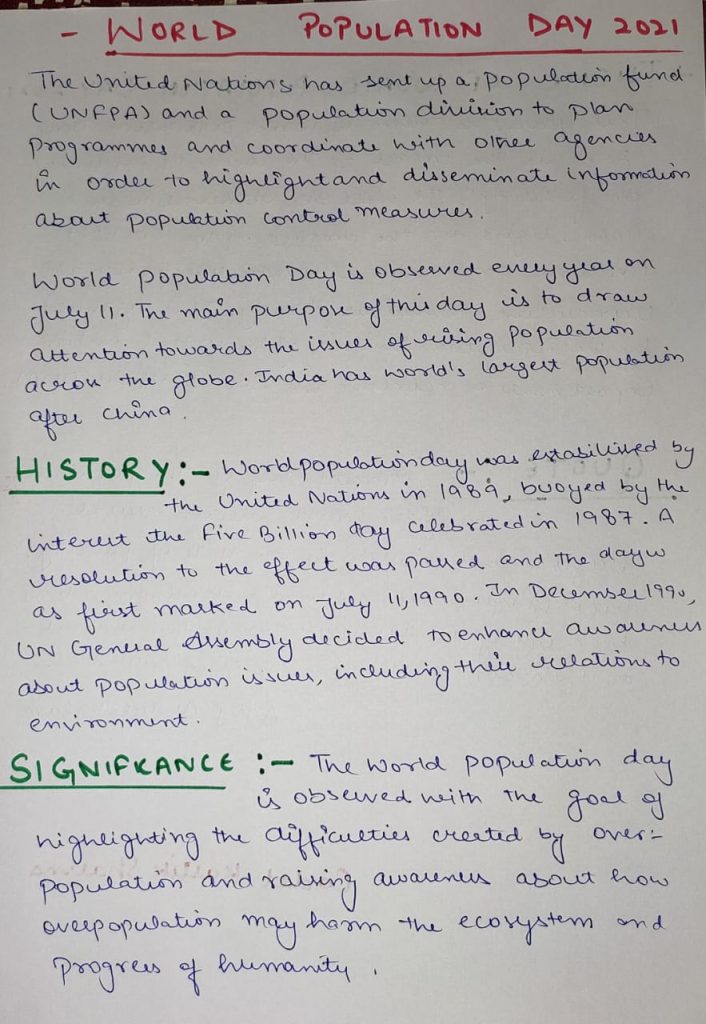 - WORLD POPULATION DAY 2021
The United Nations has sent up a population fund
(UNFPA) and a population division to plan
programmes and coordinate with other agencies
in order to highlight and disseminate information
about population control measures.
World Population Day is observed every year on
July 11. The main purpose of this day is to draw
attention towards the issues of rising population
across the globe. India has world's largest population
after China.
HISTORY:- World population day was established by
the United Nations in 1989, buoyed by the
interest the Five Billion day celebrated in 1987. A
resolution to the effect was passed and the day w
as first marked on July 11, 1990. In December 1990,
UN General Assembly decided to enhance awareness
about population issues, including their relations to
environment.
SIGNIFICANCE :- The World population day
is observed with the goal of
highlighting the difficulties created by over-
population and raising awareness about how
overpopulation may harm the ecosystem and
progress of humanity.